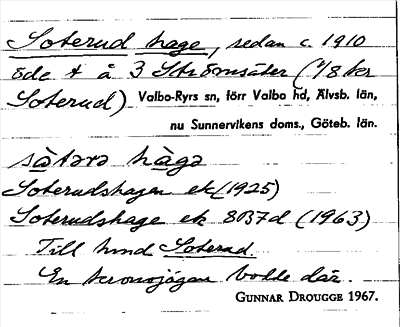 Soterud hage, sedan c. 1910
öde t å 3 Strömsäter (1/8 ktr
Soterud) Valbo-Ryrs sn, förr Valbo hd, Älvsb. län,
nu Sunnervikens doms., Göteb. län.
sɷ̀tərə hàgə
Soterudshagen ek (1925)
Soterudshage ek 8B7d (1963)
Till hmd Soterud.
En kronojägare bodde där.
GUNNAR DROUGGE 1967.